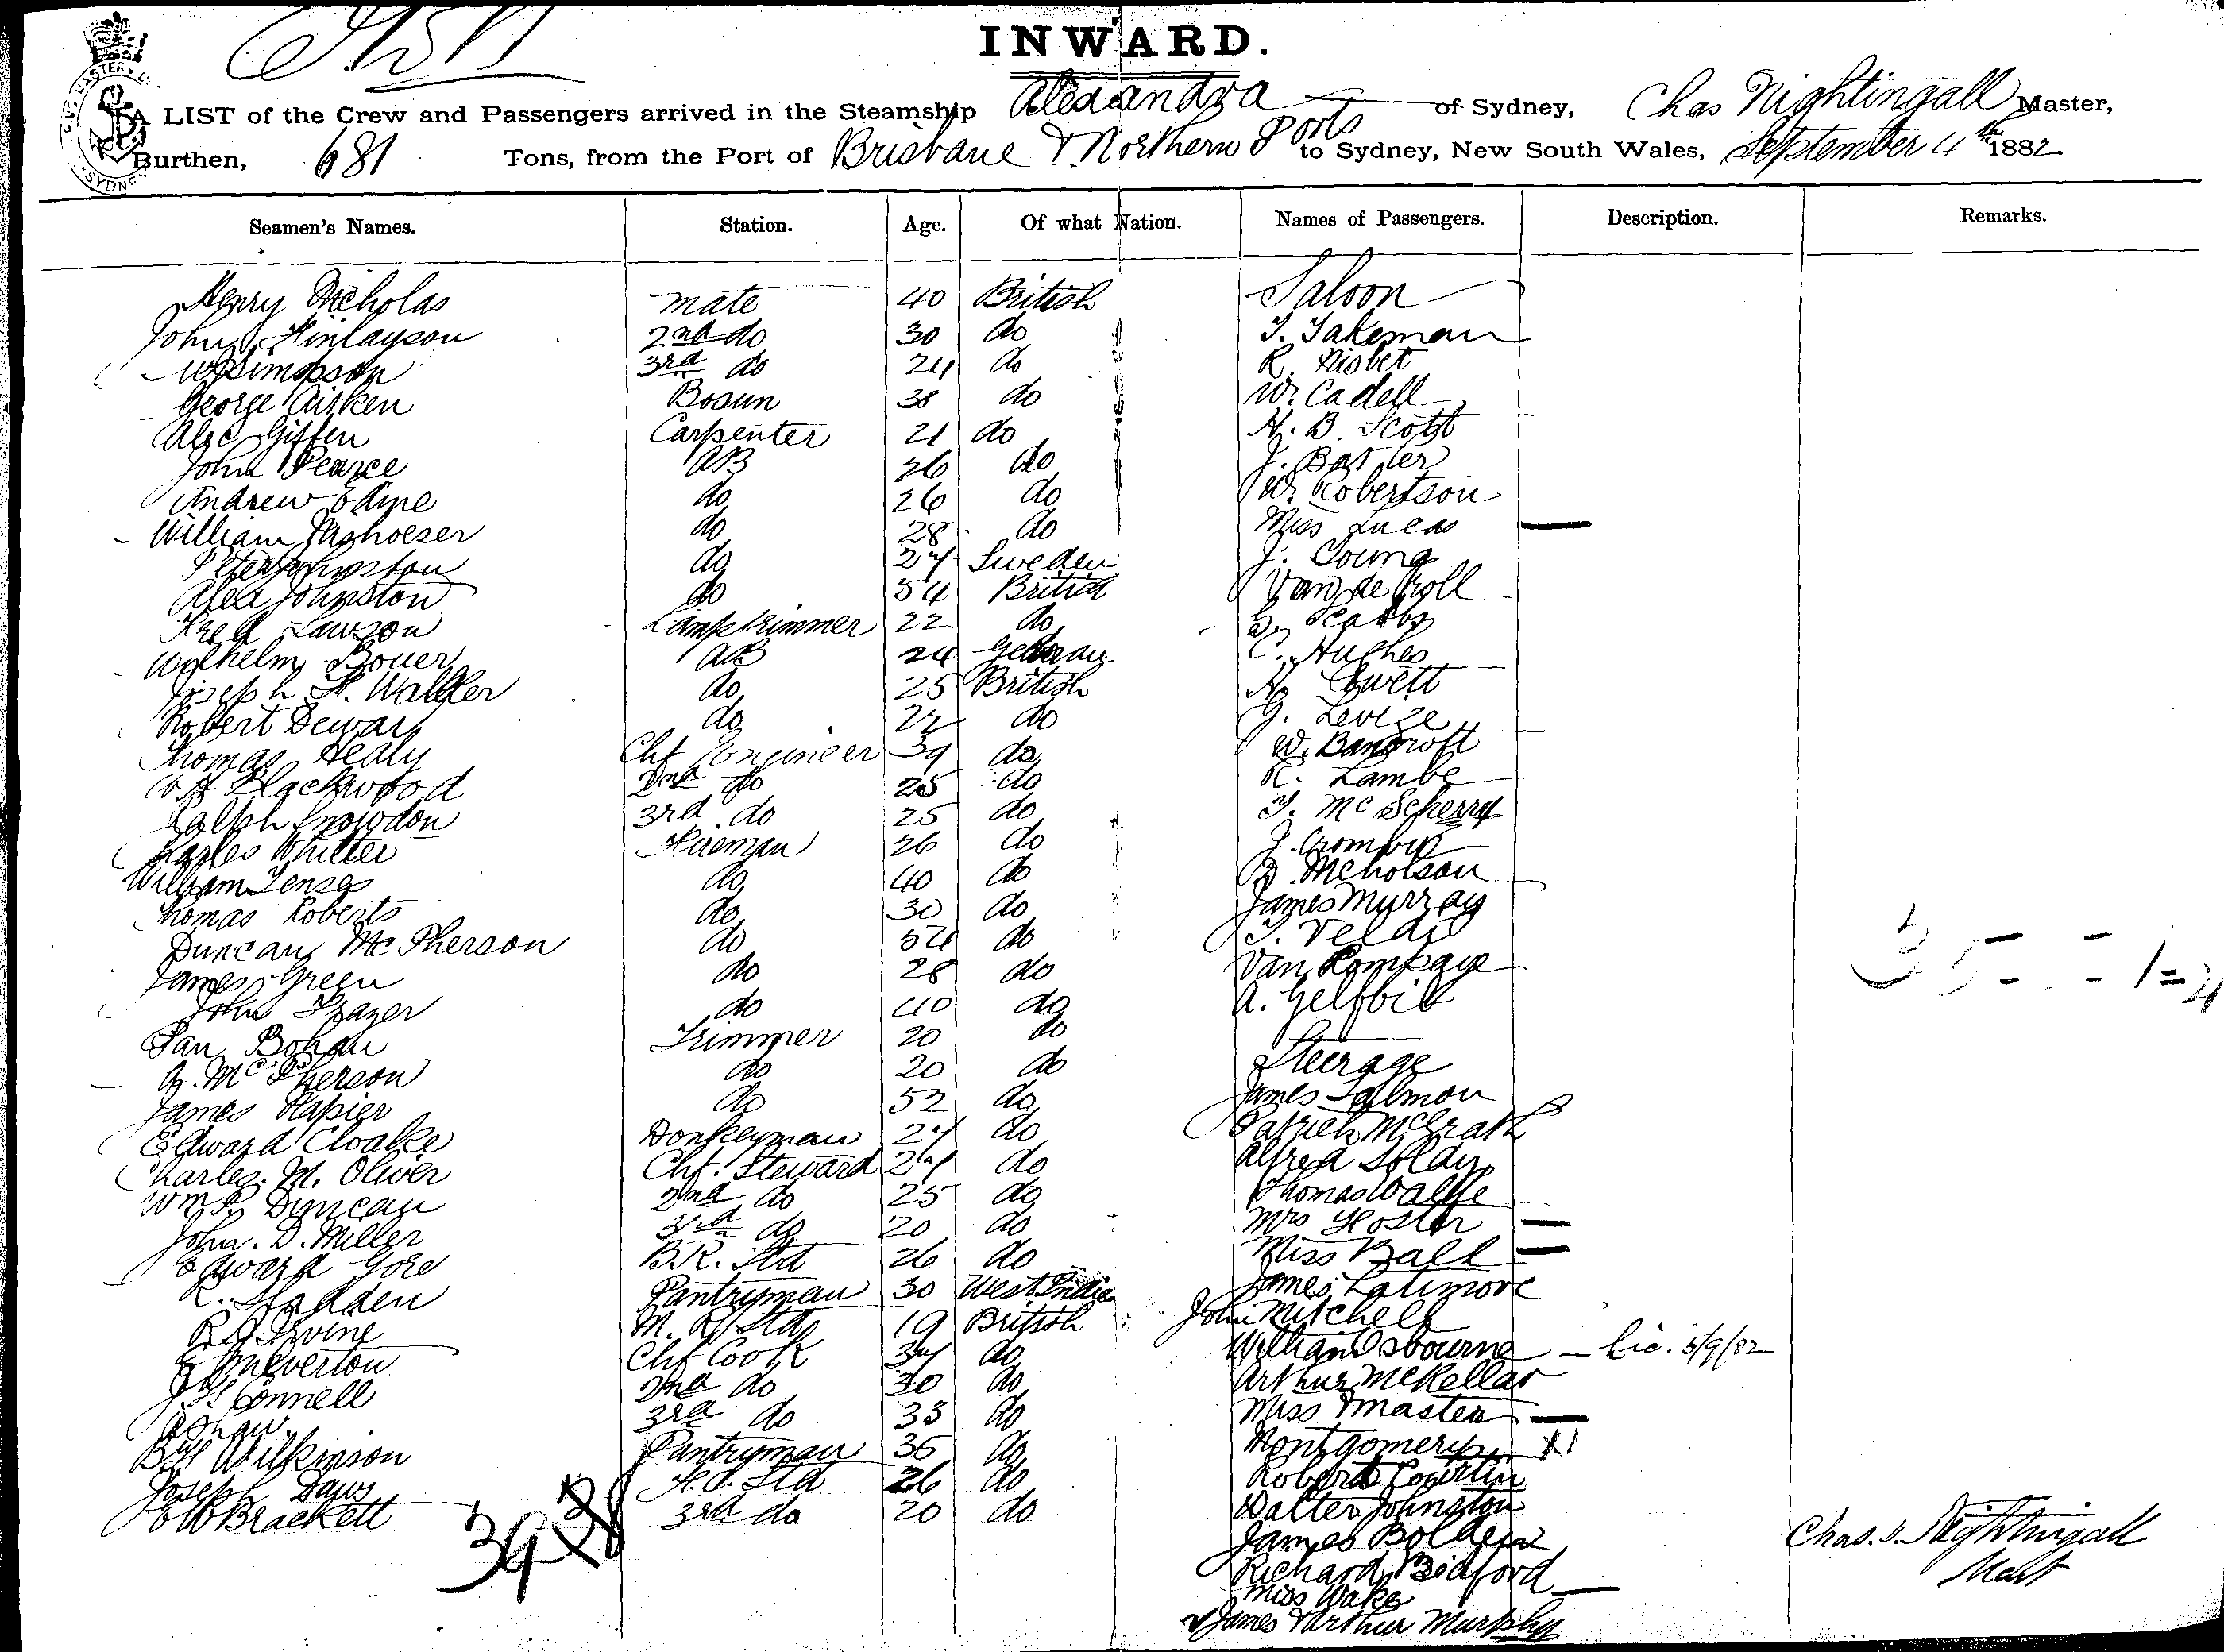 INWARD.
A LIST of the Crew and Passengers arrived in the Steamship Alexandra of Sydney, Chas Nightingall Master,
Burthen, 681 Tons, from the Port of Brisbane & Northern Ports to Sydney, New South Wales, September 4th 1882
SYDNEY
Seamen's Names. Station. Age. Of what Nation. Names of Passengers. Description. Remarks.
Henry Nicholas mate 40 British Saloon
John Finlayson 2nd do 30 do T. Takeman
W Simpson 3rd do 24 do R. Nisbet
George Aitken Bosun 38 do W. Cadell
Alec Giffen Carpenter 21 do H. B. Scott
John Pearce AB 26 do J.
Andrew do 26 do W. Robertson
William do 28 do Miss Lucas
Peter Johnston do 27 Sweden J. Young
Alex Johnston do 54 British Van de
Fred Lawson Lamptrimmer 22 do
Wilhelm Bouer AB 24 German C. Hughes
Joseph H. Walker do 25 British H.
Robert Dewar do 22 do G. Levize
Thomas Healy Chf Engineer 39 do W. Bancroft
Blackwood 2nd do 25 do R. Lambe
Ralph Snowdon 3rd do 25 do T. Mc Scherry
Charles Whitter Fireman 26 do J. Crombie
William do 40 do Nicholson
Thomas Roberts do 30 do James Murray
Duncan McPherson do 54 do T.
James Green do 28 do Van Rompaye
John Frazer do 40 do A.
Bohan Trimmer 20 do
McPherson do 20 do Steerage
James Napier do 52 do James Salmon
Edward Cloake Donkeyman 27 do Patrick McGrath
Charles. M. Oliver Chf. Steward 27 do Alfred
Wm Duncan 2nd do 25 do Thomas
John. D. Miller 3rd do 20 do Mrs Foster
Edward Gore B.R. Std 26 do Miss Ball
R. Hadden Pantryman 30 West Indies James Latimore
R Irvine M. R Std 19 British John Mitchell
E Milverton Chf Cook 37 do William Osbourne — 5/9/82
Connell 2nd do 30 do Arthur McKellar
A Shaw 3rd do 33 do Miss Master
Wilkinson Pantryman 35 do Montgomery
Joseph Daws Std 26 do Robert
Brackett 3rd do 20 do Walter Johnston
39 38
James
Richard Bidford
Miss Wake
James & Arthur Murphy
Chas. J. Nightingall
Mast